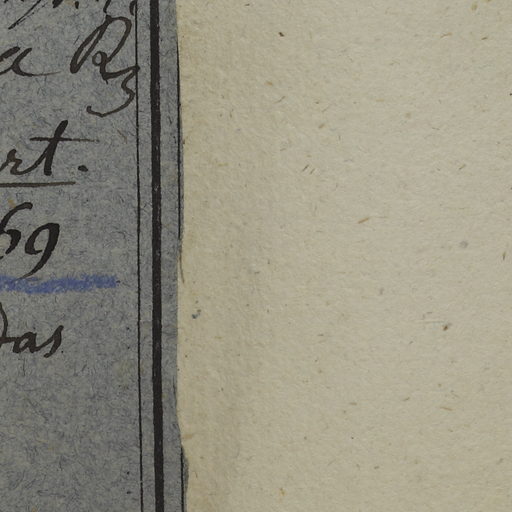 a R3
rt.
69
das